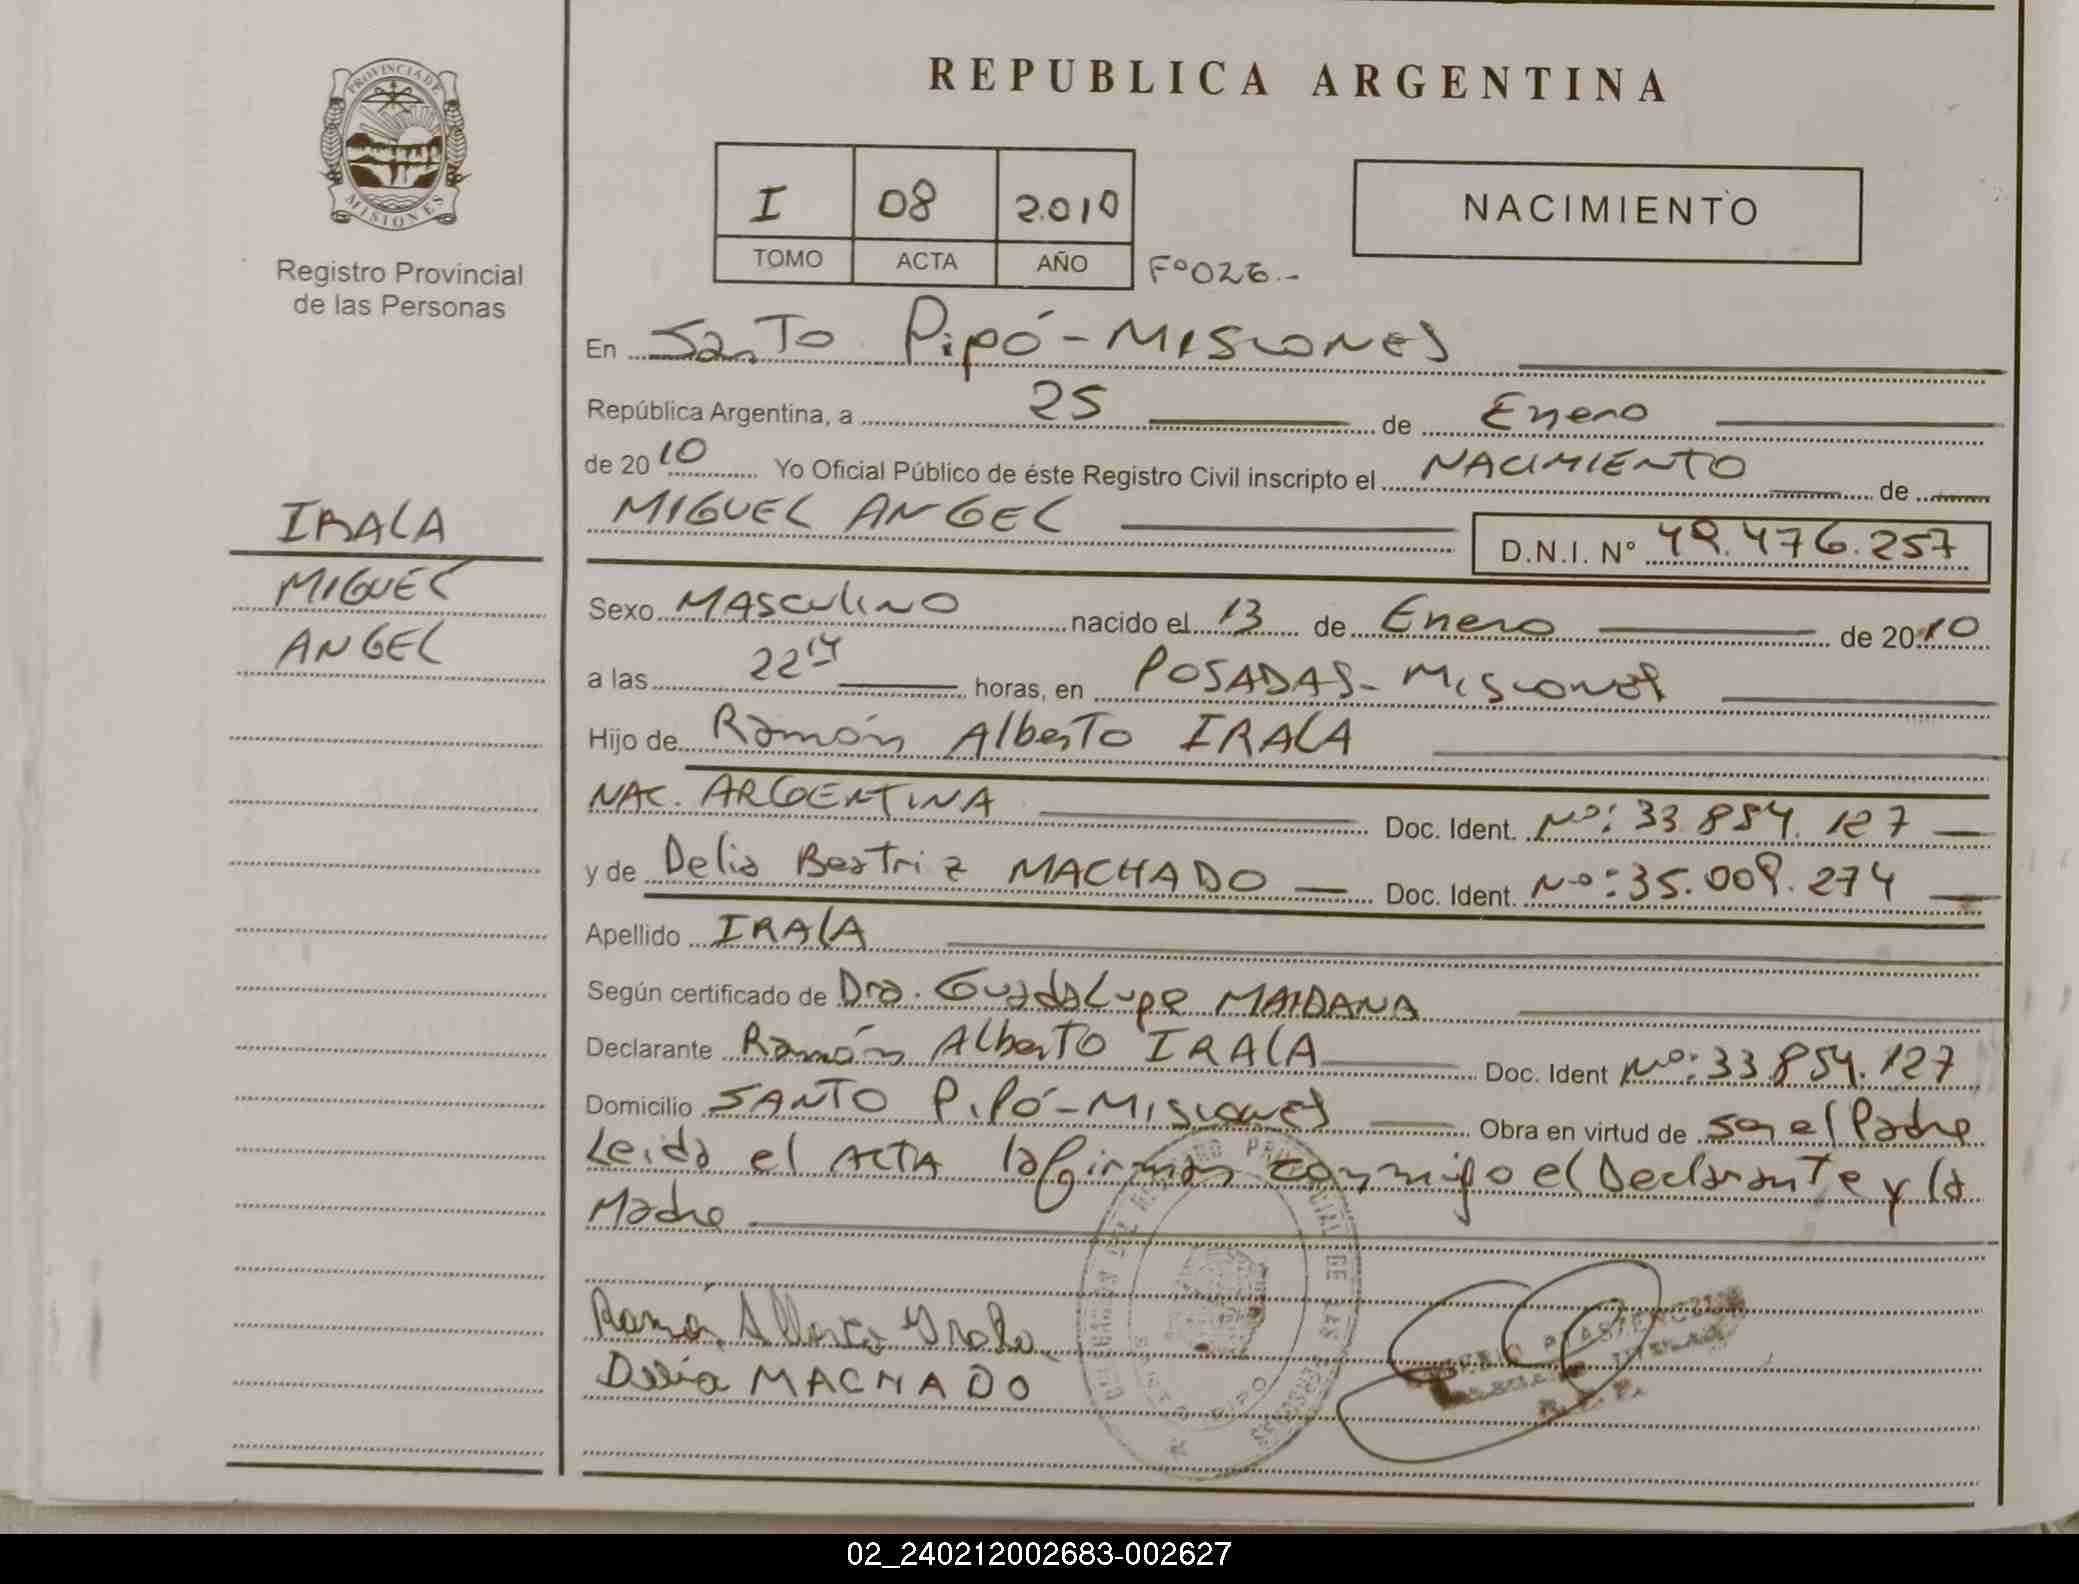 PROVINCIA DE
MISIONES
Registro Provincial
de las Personas
IRALA
MIGUEL
ANGEL
REPUBLICA ARGENTINA
I 08 2010
TOMO ACTA AÑO Fº026.-
NACIMIENTO
En Santo Pipó-MISIONES
República Argentina, a 25 de Enero
de 2010 Yo Oficial Público de éste Registro Civil inscripto el NACIMIENTO de
MIGUEL ANGEL D.N.I. Nº 49.476.257
Sexo MASCULINO nacido el 13 de Enero de 2010
a las 22 14 horas, en POSADAS-MISIONES
Hijo de Ramón Alberto IRALA
NAC. ARGENTINA Doc. Ident. Nº: 33.854.127
y de Delia Beatriz MACHADO Doc. Ident. Nº: 35.009.274
Apellido IRALA
Según certificado de Dra. Guadalupe MAIDANA
Declarante Ramón Alberto IRALA Doc. Ident Nº: 33.854.127
Domicilio SANTO Pipó-MISIONES Obra en virtud de ser el Padre
Leida el ACTA la firman conmigo el Declarante y la
Madre
Ramón Alberto Irala
Delia MACHADO
02_240212002683-002627